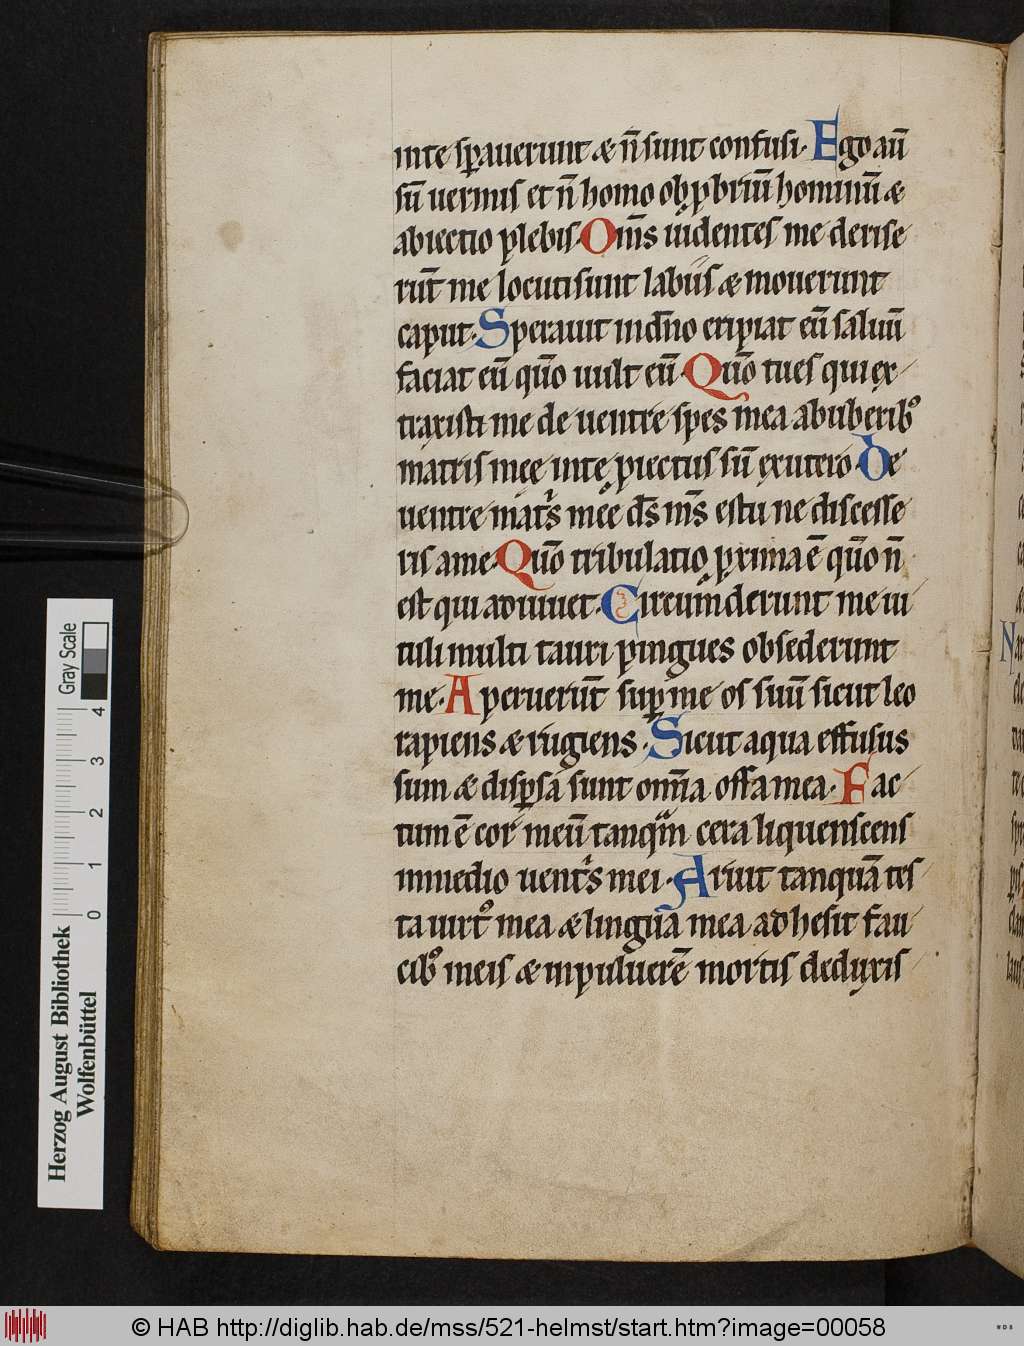 inte sp̄auerunt & n̄ sunt confusi. Ego aū
sū uermis et n̄ homo obp̄briū hominū &
abiectio plebis. Om̄s uidentes me derise
rūt me locuti sunt labiis & mouerunt
caput. Sperauit in dn̄o eripiat eū saluū
faciat eū qūo uult eū. Qūo tu es qui ex
traxisti me de uentre spes mea ab uberibꝰ
matris meę in te ꝓiectus sū ex utero. De
uentre mat̓s meę ds̄ ms̄ es tu ne discesse
ris a me. Qūo tribulatio ꝓxima ē qūo n̄
est qui adiuuet. Circūmderunt me ui
tuli multi tauri pingues obsederunt
me. Aperuerūt suꝑ me os suū sicut leo
rapiens & rugiens. Sicut aqua effusus
sum & disꝑsa sunt om̄ia ossa mea. Fac
tum ē cor meū tanqͣm cera liquenscens
in medio uent̓s mei. Aruit tanquā tes
ta uirtꝰ mea & lingua mea adhesit fau
cibꝰ meis & in puluerē mortis deduxis
Herzog August Bibliothek
Wolfenbüttel
0 1 2 3 4
Gray Scale
© HAB http://diglib.hab.de/mss/521-helmst/start.htm?image=00058